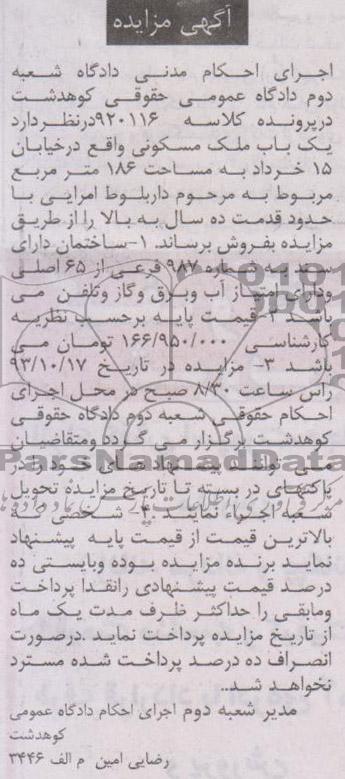 آگهی مزایده
اجرای احکام مدنی دادگاه شعبه
دوم دادگاه عمومی حقوقی کوهدشت
درپرونده کلاسه ۹۲۰۱۱۶درنظردارد
یک باب ملک مسکونی واقع درخیابان
۱۵ خرداد به مساحت ۱۸۶ متر مربع
مربوط به مرحوم داربلوط امرایی با
حدود قدمت ده سال به بالا را از طریق
مزایده بفروش برساند. ۱-ساختمان دارای
سند به شماره ۹۸۷ فرعی از ۶۵ اصلی
ودارای امتیاز آب وبرق وگاز وتلفن می
باشد ۲- قیمت پایه برحسب نظریه
کارشناسی ۱۶۶/۹۵۰/۰۰۰ تومان می
باشد ۳- مزایده در تاریخ ۹۳/۱۰/۱۷
راس ساعت ۸/۳۰ صبح در محل اجرای
احکام حقوقی شعبه دوم دادگاه حقوقی
کوهدشت برگزار می گردد ومتقاضیان
می توانند پیشنهادهای خود را در
پاکتهای در بسته تا تاریخ مزایده تحویل
شعبه اجراء نمایند ۴- شخصی که
بالاترین قیمت از قیمت پایه پیشنهاد
نماید برنده مزایده بوده وبایستی ده
درصد قیمت پیشنهادی رانقدا پرداخت
ومابقی را حداکثر ظرف مدت یک ماه
از تاریخ مزایده پرداخت نماید .درصورت
انصراف ده درصد پرداخت شده مسترد
نخواهد شد.
مدیر شعبه دوم اجرای احکام دادگاه عمومی
کوهدشت
رضایی امین م الف ۳۴۴۶
ParsNamadData